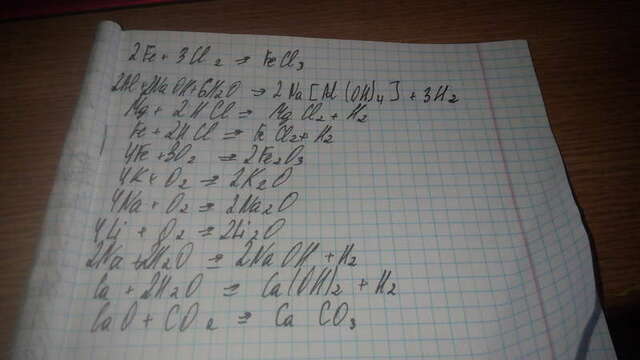 2Fe + 3Cl2 => FeCl3
2Al + 2NaOH + 6H2O => 2Na[Al(OH)4] + 3H2
Mg + 2HCl => MgCl2 + H2
Fe + 2HCl => FeCl2 + H2
4Fe + 3O2 => 2Fe2O3
4K + O2 => 2K2O
4Na + O2 => 2Na2O
4Li + O2 => 2Li2O
2Na + 2H2O => 2NaOH + H2
Ca + 2H2O => Ca(OH)2 + H2
CaO + CO2 => CaCO3